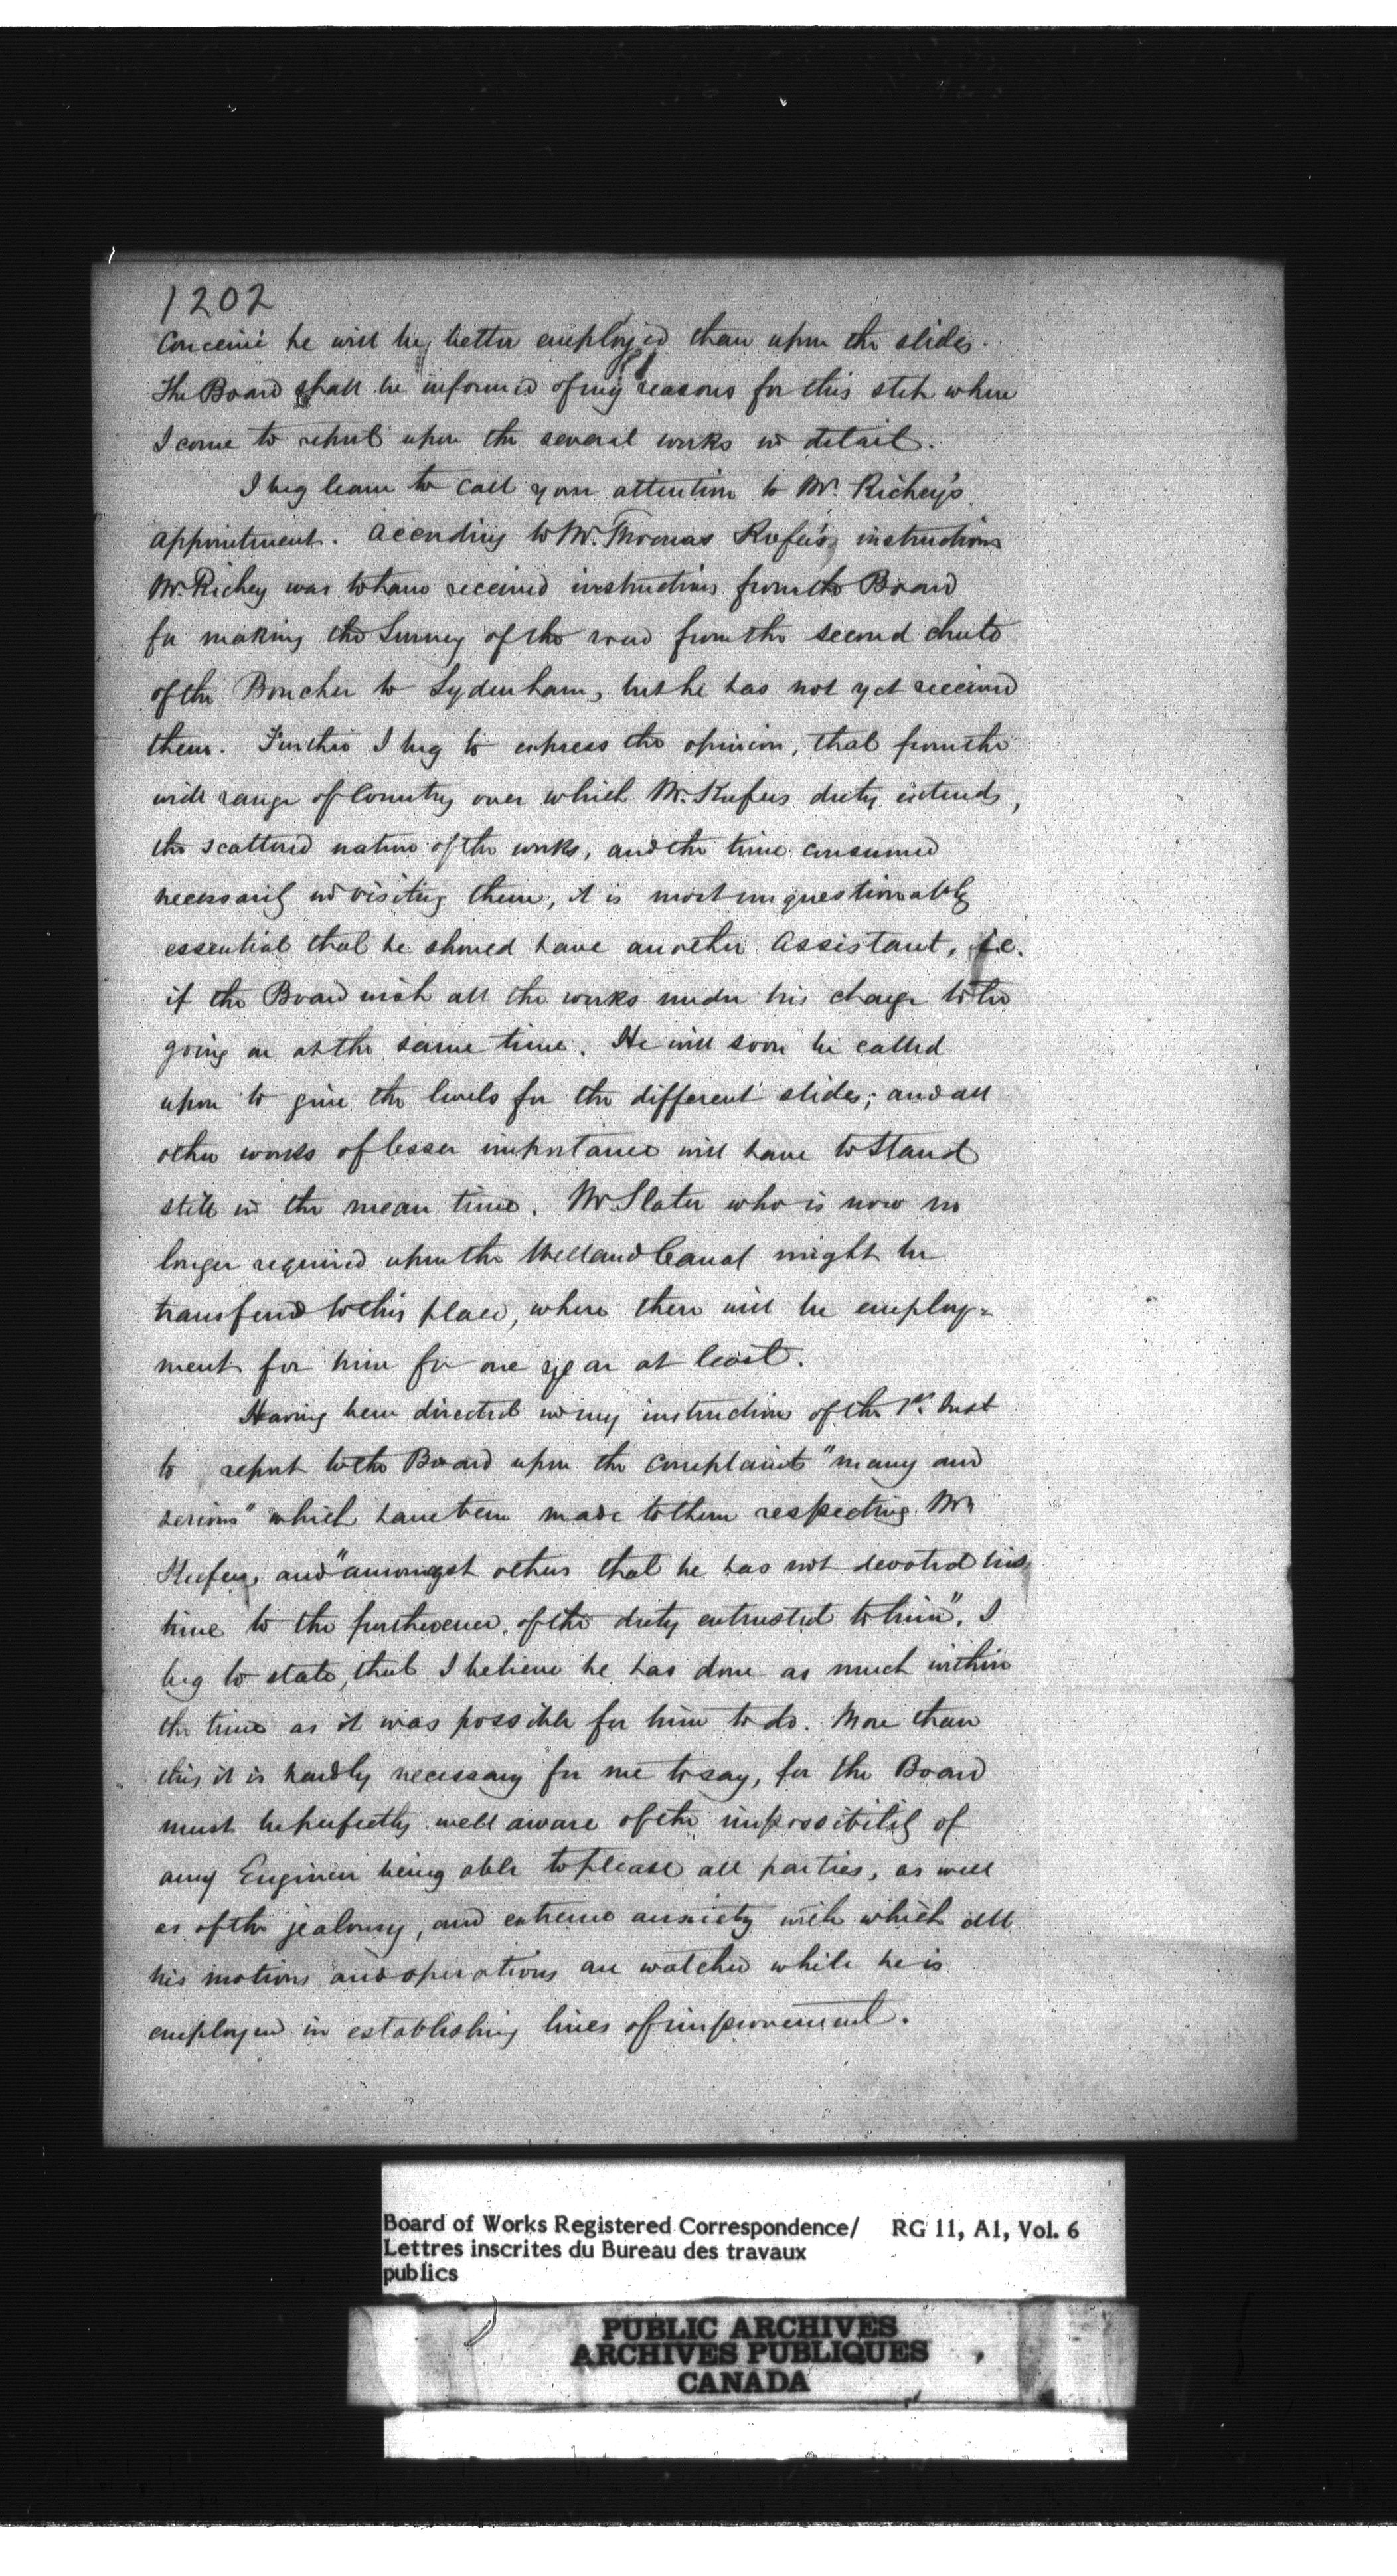 1202
Conceive he will be better employed than upon the slides.
The Board shall be informed of my reasons for this step when
I come to report upon the several works in detail.
I beg leave to call your attention to Mr. Richey's
appointment. According to Mr. Thomas Keefer's instructions
Mr. Richey was to have received instructions from the Board
for making the Survey of the road from the second chute
of the Boncher to Sydenham, but he has not yet received
them. Further I beg to express the opinion, that from the
wide range of Country over which Mr. Keefers duty extends,
the scattered nature of the works, and the time consumed
necessarily in visiting them, it is most unquestionably
essential that he should have another Assistant, i.e.
if the Board wish all the works under his charge to be
going on at the same time. He will soon be called
upon to give the levels for the different slides; and all
other works of lesser importance will have to Stand
still in the mean time. Mr. Slater who is now no
longer required upon the Welland Canal might be
transferred to this place, where there will be employ=
ment for him for one year at least.
Having been directed in my instructions of the 1st. Inst
to report to the Board upon the complaints "many and
serious" which have been made to them respecting Mr.
Keefer, and "amongst others that he has not devoted his
time to the furtherance of the duty entrusted to him", I
beg to state, that I believe he has done as much within
the time as it was possible for him to do. More than
this it is hardly necessary for me to say, for the Board
must be perfectly well aware of the impossibility of
any Engineer being able to please all parties, as well
as of the jealousy, and extreme anxiety with which all
his motions and operations are watched while he is
employed in establishing lines of improvement.
Board of Works Registered Correspondence/ RG 11, A1, Vol. 6
Lettres inscrites du Bureau des travaux
publics
PUBLIC ARCHIVES
ARCHIVES PUBLIQUES
CANADA